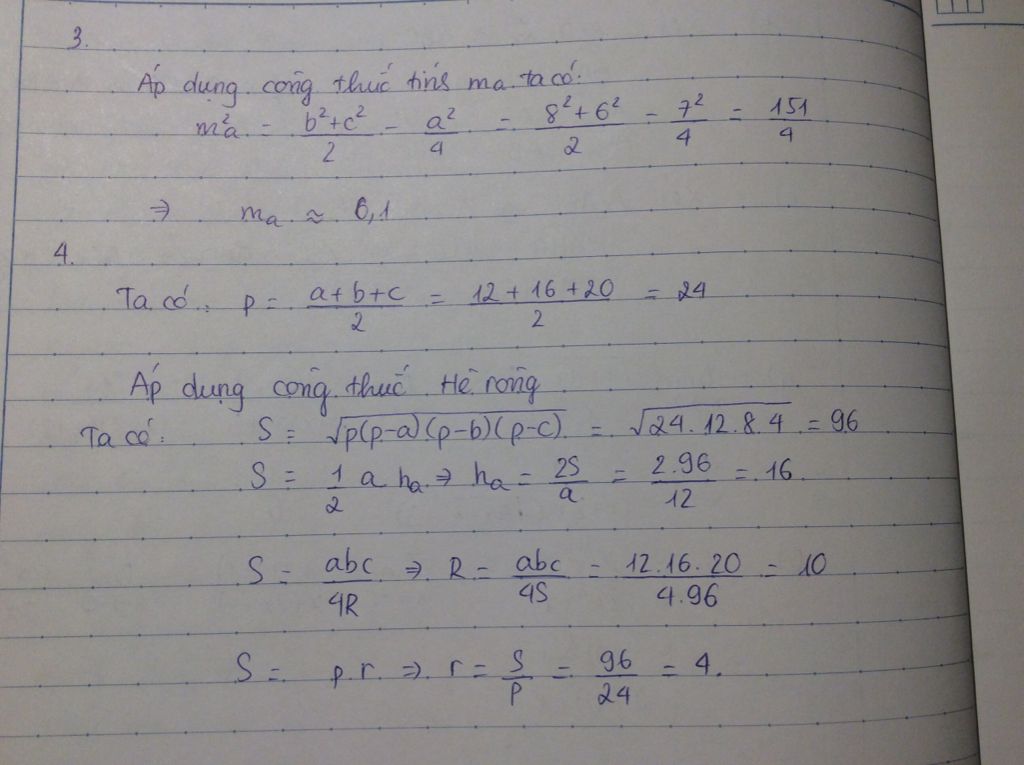 3.
Áp dụng công thức tính ma ta có:
m²a = b²+c²/2 - a²/4 = 8²+6²/2 - 7²/4 = 151/4
⇒ ma ≈ 6,1
4.
Ta có: p = a+b+c/2 = 12+16+20/2 = 24
Áp dụng công thức Hê rông
Ta có: S = √p(p-a)(p-b)(p-c) = √24.12.8.4 = 96
S = 1/2 a ha ⇒ ha = 2S/a = 2.96/12 = 16
S = abc/4R ⇒ R = abc/4S = 12.16.20/4.96 = 10
S = p.r ⇒ r = S/p = 96/24 = 4.